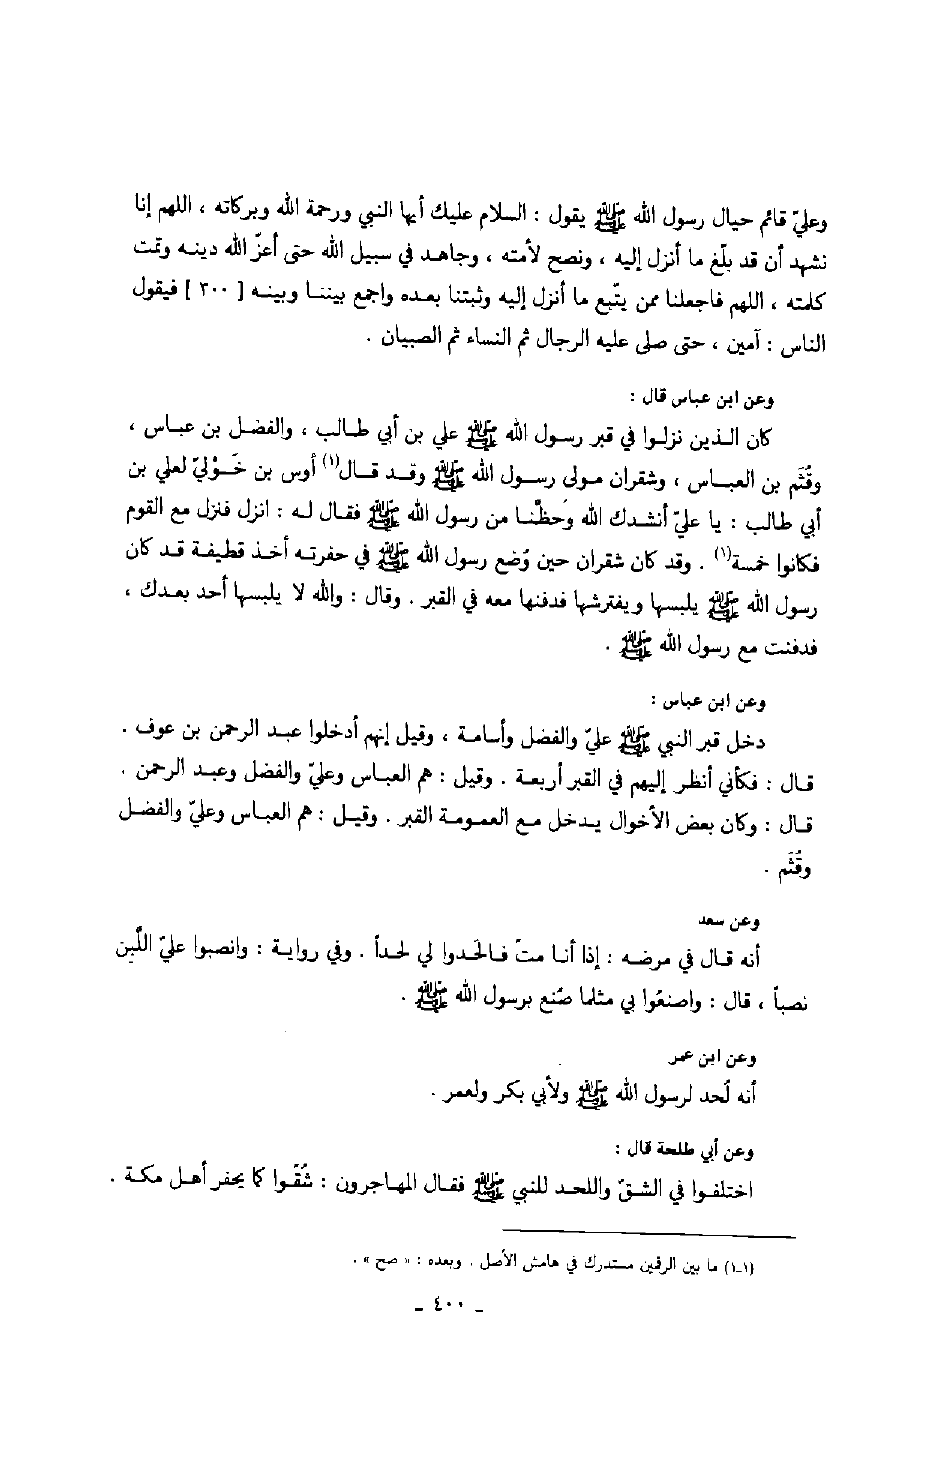 وعليّ قائم حيال رسول الله ﷺ يقول : السلام عليك أيها النبي ورحمة الله وبركاته ، اللهم إنا
نشهد أن قد بلّغ ما أنزل إليه ، ونصح لأمته ، وجاهد في سبيل الله حتى أعزّ الله دينه وتمت
كلمته ، اللهم فاجعلنا ممن يتّبع ما أنزل إليه وثبتنا بعده واجمع بيننا وبينه [ ٢٠٠ ] فيقول
الناس : آمين ، حتى صلى عليه الرجال ثم النساء ثم الصبيان .
وعن ابن عباس قال :
كان الذين نزلوا في قبر رسول الله ﷺ علي بن أبي طالب ، والفضل بن عباس ،
وقُثَم بن العباس ، وشقران مولى رسول الله ﷺ وقد قال(١) أوس بن خَوْليّ لعلي بن
أبي طالب : يا عليّ أنشدك الله وَحظّنا من رسول الله ﷺ فقال له : انزل فنزل مع القوم
فكانوا خمسة(١) . وقد كان شقران حين وُضع رسول الله ﷺ في حفرته أخذ قطيفة قد كان
رسول الله ﷺ يلبسها ويفترشها فدفنها معه في القبر . وقال : والله لا يلبسها أحد بعدك ،
فدفنت مع رسول الله ﷺ .
وعن ابن عباس :
دخل قبر النبي ﷺ عليّ والفضل وأسامة ، وقيل إنهم أدخلوا عبد الرحمن بن عوف .
قال : فكأني أنظر إليهم في القبر أربعة . وقيل : هم العباس وعليّ والفضل وعبد الرحمن .
قال : وكان بعض الأخوال يدخل مع العمومة القبر . وقيل : هم العباس وعليّ والفضل
وقُثَم .
وعن سعد
أنه قال في مرضه : إذا أنا متّ فالحدوا لي لحداً . وفي رواية : وانصبوا عليّ اللَّبِن
نصباً ، قال : واصنعُوا بي مثلما صُنع برسول الله ﷺ .
وعن ابن عمر
أنه لُحد لرسول الله ﷺ ولأبي بكر ولعمر .
وعن أبي طلحة قال :
اختلفوا في الشقّ واللحد للنبي ﷺ فقال المهاجرون : شُقّوا كما يحفر أهل مكة .
(١-١) ما بين الرقين مستدرك في هامش الأصل . وبعده : « صح » .
- ٤٠٠ -